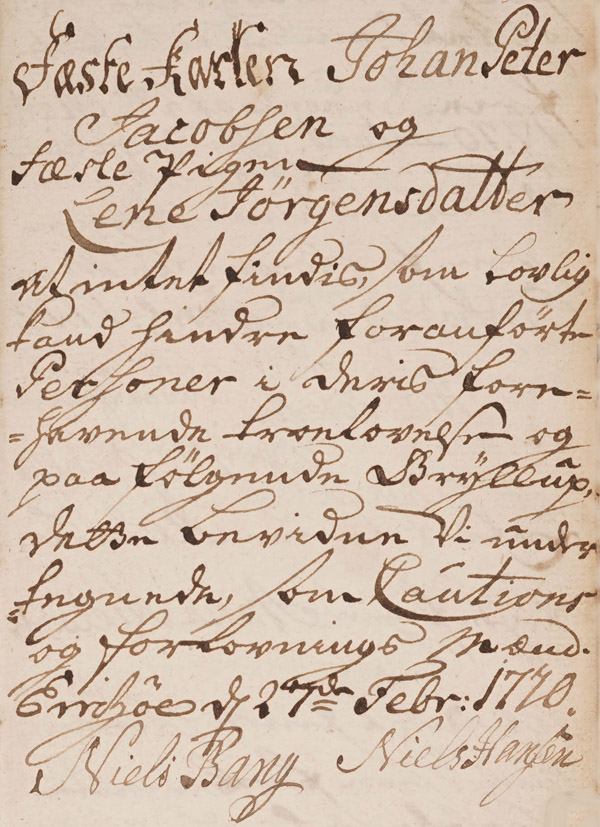 Fæste Karlen Johan Peter
Jacobsen og
fæste Pigen
Lene Jörgensdatter
at intet findis, som lovlig
kand hindre foranförte
Personer i deris fore=
=havende troelovelse og
paa fölgende Brÿllup,
dette bevidne Vi under
=tegnede, som Cautions
og forlovnings Mænd.
d 27de Febr: 1770.
Niels Bang Niels Hansen